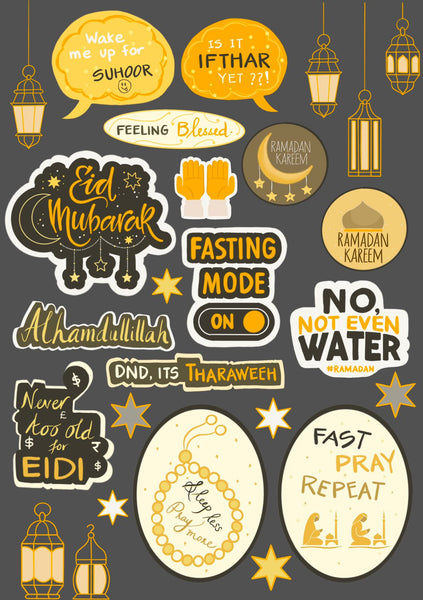 Wake
me up for
SUHOOR
IS IT
IFTHAR
YET ??!
FEELING Blessed
RAMADAN
KAREEM
Eid
Mubarak
FASTING
MODE
ON
RAMADAN
KAREEM
NO,
NOT EVEN
WATER
#RAMADAN
Alhamdullillah
DND, ITS THARAWEEH
Never
too old
for
EIDI
£
$
$
$
Sleep less
Pray more
FAST
PRAY
REPEAT